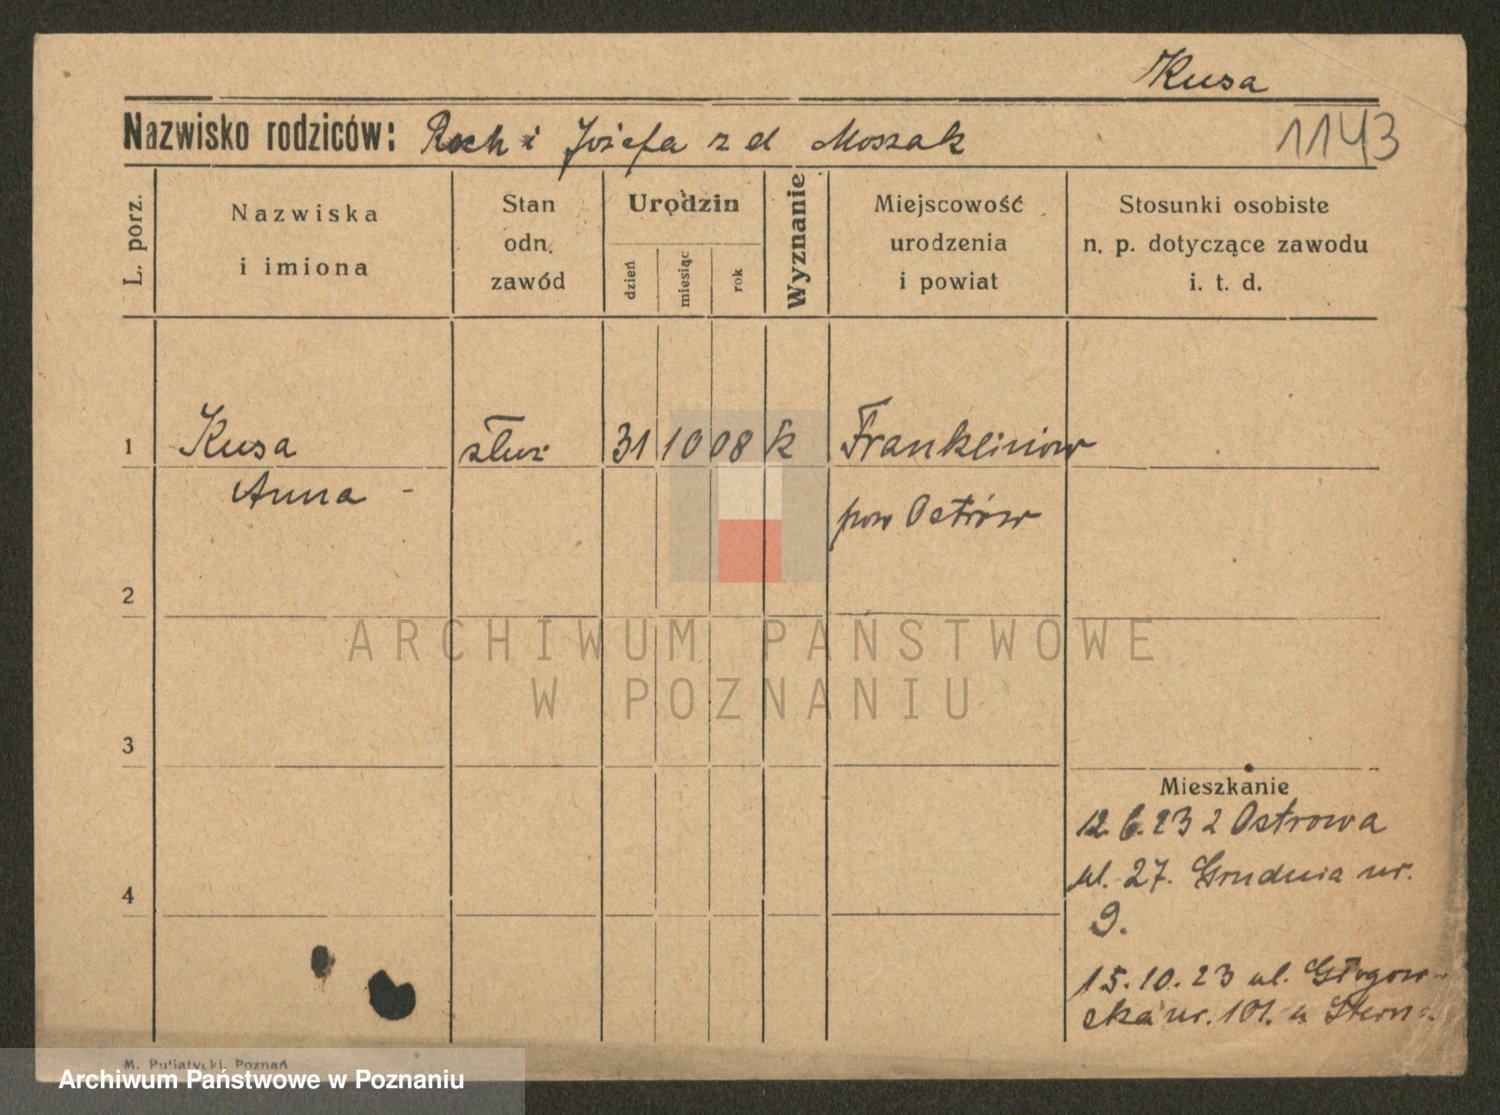 Kusa
Nazwisko rodziców: Roch i Józefa z d Moszak
1143
L. porz.
Nazwiska
i imiona
Stan
odn.
zawód
Urodzin
dzień
miesiąc
rok
Wyznanie
Miejscowość
urodzenia
i powiat
Stosunki osobiste
n. p. dotyczące zawodu
i. t. d.
1 Kusa służ 31 10 08 k Frankliniow
Anna - pow Ostrów
2
ARCHIWUM PAŃSTWOWE
W POZNANIU
3
Mieszkanie
12.6.23 z Ostrowa
ul. 27. Grudnia nr.
4
9.
15.10.23 ul. Głogow-
ska nr. 101. u
M. Putiatycki, Poznań
Archiwum Państwowe w Poznaniu